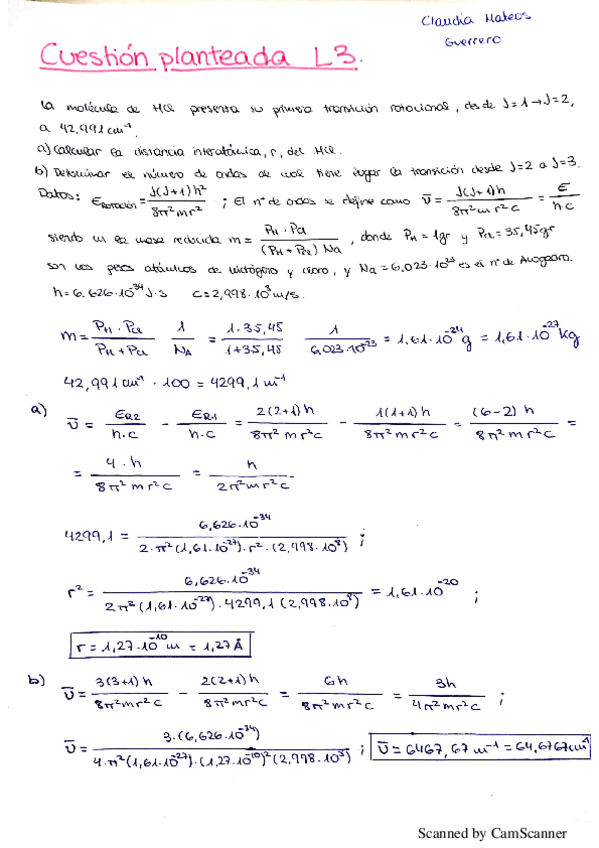 Claudia Mateos
Guerrero
Cuestión planteada L3.
La molécula de HCl presenta su primera transición rotacional, desde J=1→J=2,
a 42,991 cm⁻¹.
a) Calcular la distancia interatómica, r, del HCl.
b) Determinar el número de ondas de cual tiene lugar la transición desde J=2 a J=3.
Datos: E_ROTACIÓN = J(J+1)h² / 8π²mr² ; El nº de ondas se define como ῡ = J(J+1)h / 8π²mr²c = E / h·c
siendo m la masa reducida m = P_H · P_Cl / (P_H + P_Cl) Na , donde P_H = 1gr y P_Cl = 35,45gr
son los pesos atómicos de hidrógeno y cloro, y Na = 6,023·10²³ es el nº de Avogadro.
h = 6,626·10⁻³⁴ J·s c = 2,998·10⁸ m/s.
m = P_H · P_Cl / P_H + P_Cl 1 / N_A = 1·35,45 / 1+35,45 1 / 6,023·10⁻²³ = 1,61·10⁻²⁴ g = 1,61·10⁻²⁷ kg
42,991 cm⁻¹ · 100 = 4299,1 m⁻¹
a) ῡ = E_R2 / h·c - E_R1 / h·c = 2(2+1)h / 8π²mr²c - 1(1+1)h / 8π²mr²c = (6-2)h / 8π²mr²c =
= 4·h / 8π²mr²c = h / 2π²mr²c
4299,1 = 6,626·10⁻³⁴ / 2·π²(1,61·10⁻²⁷)·r²·(2,998·10⁸) ;
r² = 6,626·10⁻³⁴ / 2π²(1,61·10⁻²⁷)·4299,1(2,998·10⁸) = 1,61·10⁻²⁰ ;
r = 1,27·10⁻¹⁰ m = 1,27 Å
b) ῡ = 3(3+1)h / 8π²mr²c - 2(2+1)h / 8π²mr²c = 6h / 8π²mr²c = 3h / 4π²mr²c ;
ῡ = 3·(6,626·10⁻³⁴) / 4·π²(1,61·10⁻²⁷)·(1,27·10⁻¹⁰)²(2,998·10⁸) ; ῡ = 6467,67 m⁻¹ = 64,6767 cm⁻¹
Scanned by CamScanner